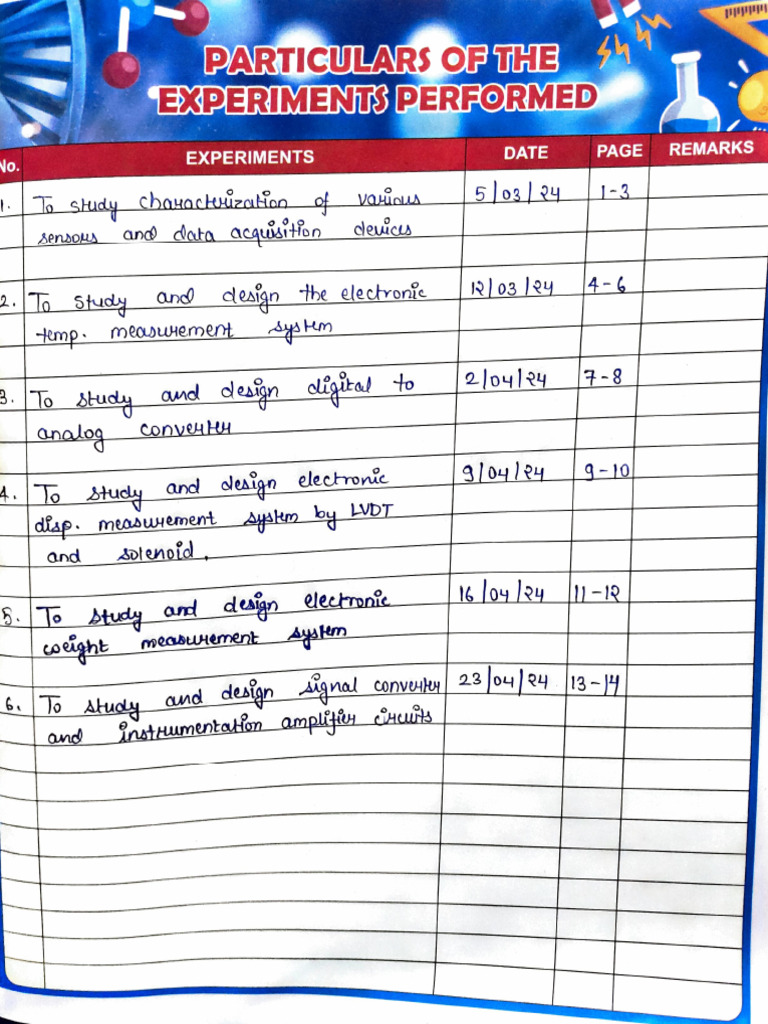 PARTICULARS OF THE
EXPERIMENTS PERFORMED
No. EXPERIMENTS DATE PAGE REMARKS
1. To study characterization of various 5/03/24 1-3
sensors and data acquisition devices
2. To study and design the electronic 12/03/24 4-6
temp. measurement system
3. To study and design digital to 2/04/24 7-8
analog converter
4. To study and design electronic 9/04/24 9-10
disp. measurement system by LVDT
and solenoid.
5. To study and design electronic 16/04/24 11-12
weight measurement system
6. To study and design signal converter 23/04/24 13-14
and instrumentation amplifier circuits